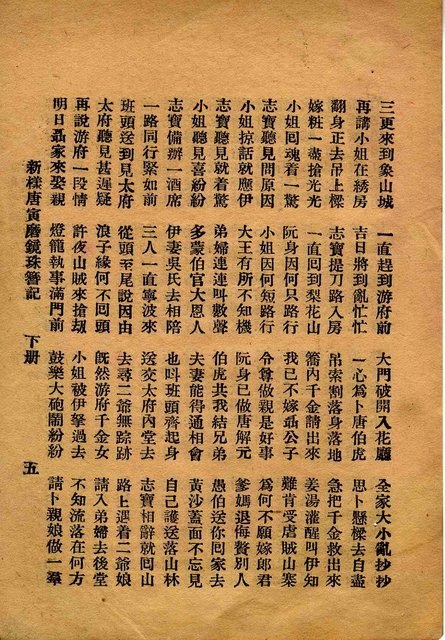 三更來到象山城 一直趕到游府前 大門破開入花廳 全家大小亂抄抄
再講小姐在綉房 吉日將到亂忙忙 一心為卜唐伯虎 思卜懸樑去自盡
翻身正去吊上樑 志寶提刀路入房 吊索割落身落地 急把千金救出來
嫁粧一盡搶光光 一直囘到梨花山 籠內千金請出來 姜湯灌醒叫伊知
小姐囘魂着一驚 阮身因何只路行 我已不嫁聶公子 難肯受虐賊山寨
志寶聽見問原因 小姐因何短路行 令尊做親是好事 為何不願嫁郎君
小姐掠話就應伊 大王有所不知機 阮身已做唐解元 爹媽退侮贅別人
志寶聽見就着驚 弟婦連連叫數聲 伯虎共我結兄弟 愚伯送你囘家去
小姐聽見喜紛紛 多蒙伯官大恩人 夫妻能得通相會 黃沙蓋面不忘見
志寶備辦一酒席 伊妻吳氏去相陪 也叫班頭齊起身 自己護送落山林
一路同行緊如前 三人一直寧波來 送交太府內堂去 志寶相辭就囘山
班頭送到見太府 從頭至尾說因由 去尋二爺無踪跡 路上遇着二爺娘
太府聽見甚遲疑 浪子緣何不囘頭 旣然游府千金女 請入弟婦去後堂
再說游府一段情 許夜山賊來搶刼 小姐被伊擎過去 不知流落在何方
明日聶家來娶親 燈籠執事滿門前 鼓樂大砲鬧紛紛 請卜親娘做一羣
新樣唐寅磨鏡珠簪記 下册 五